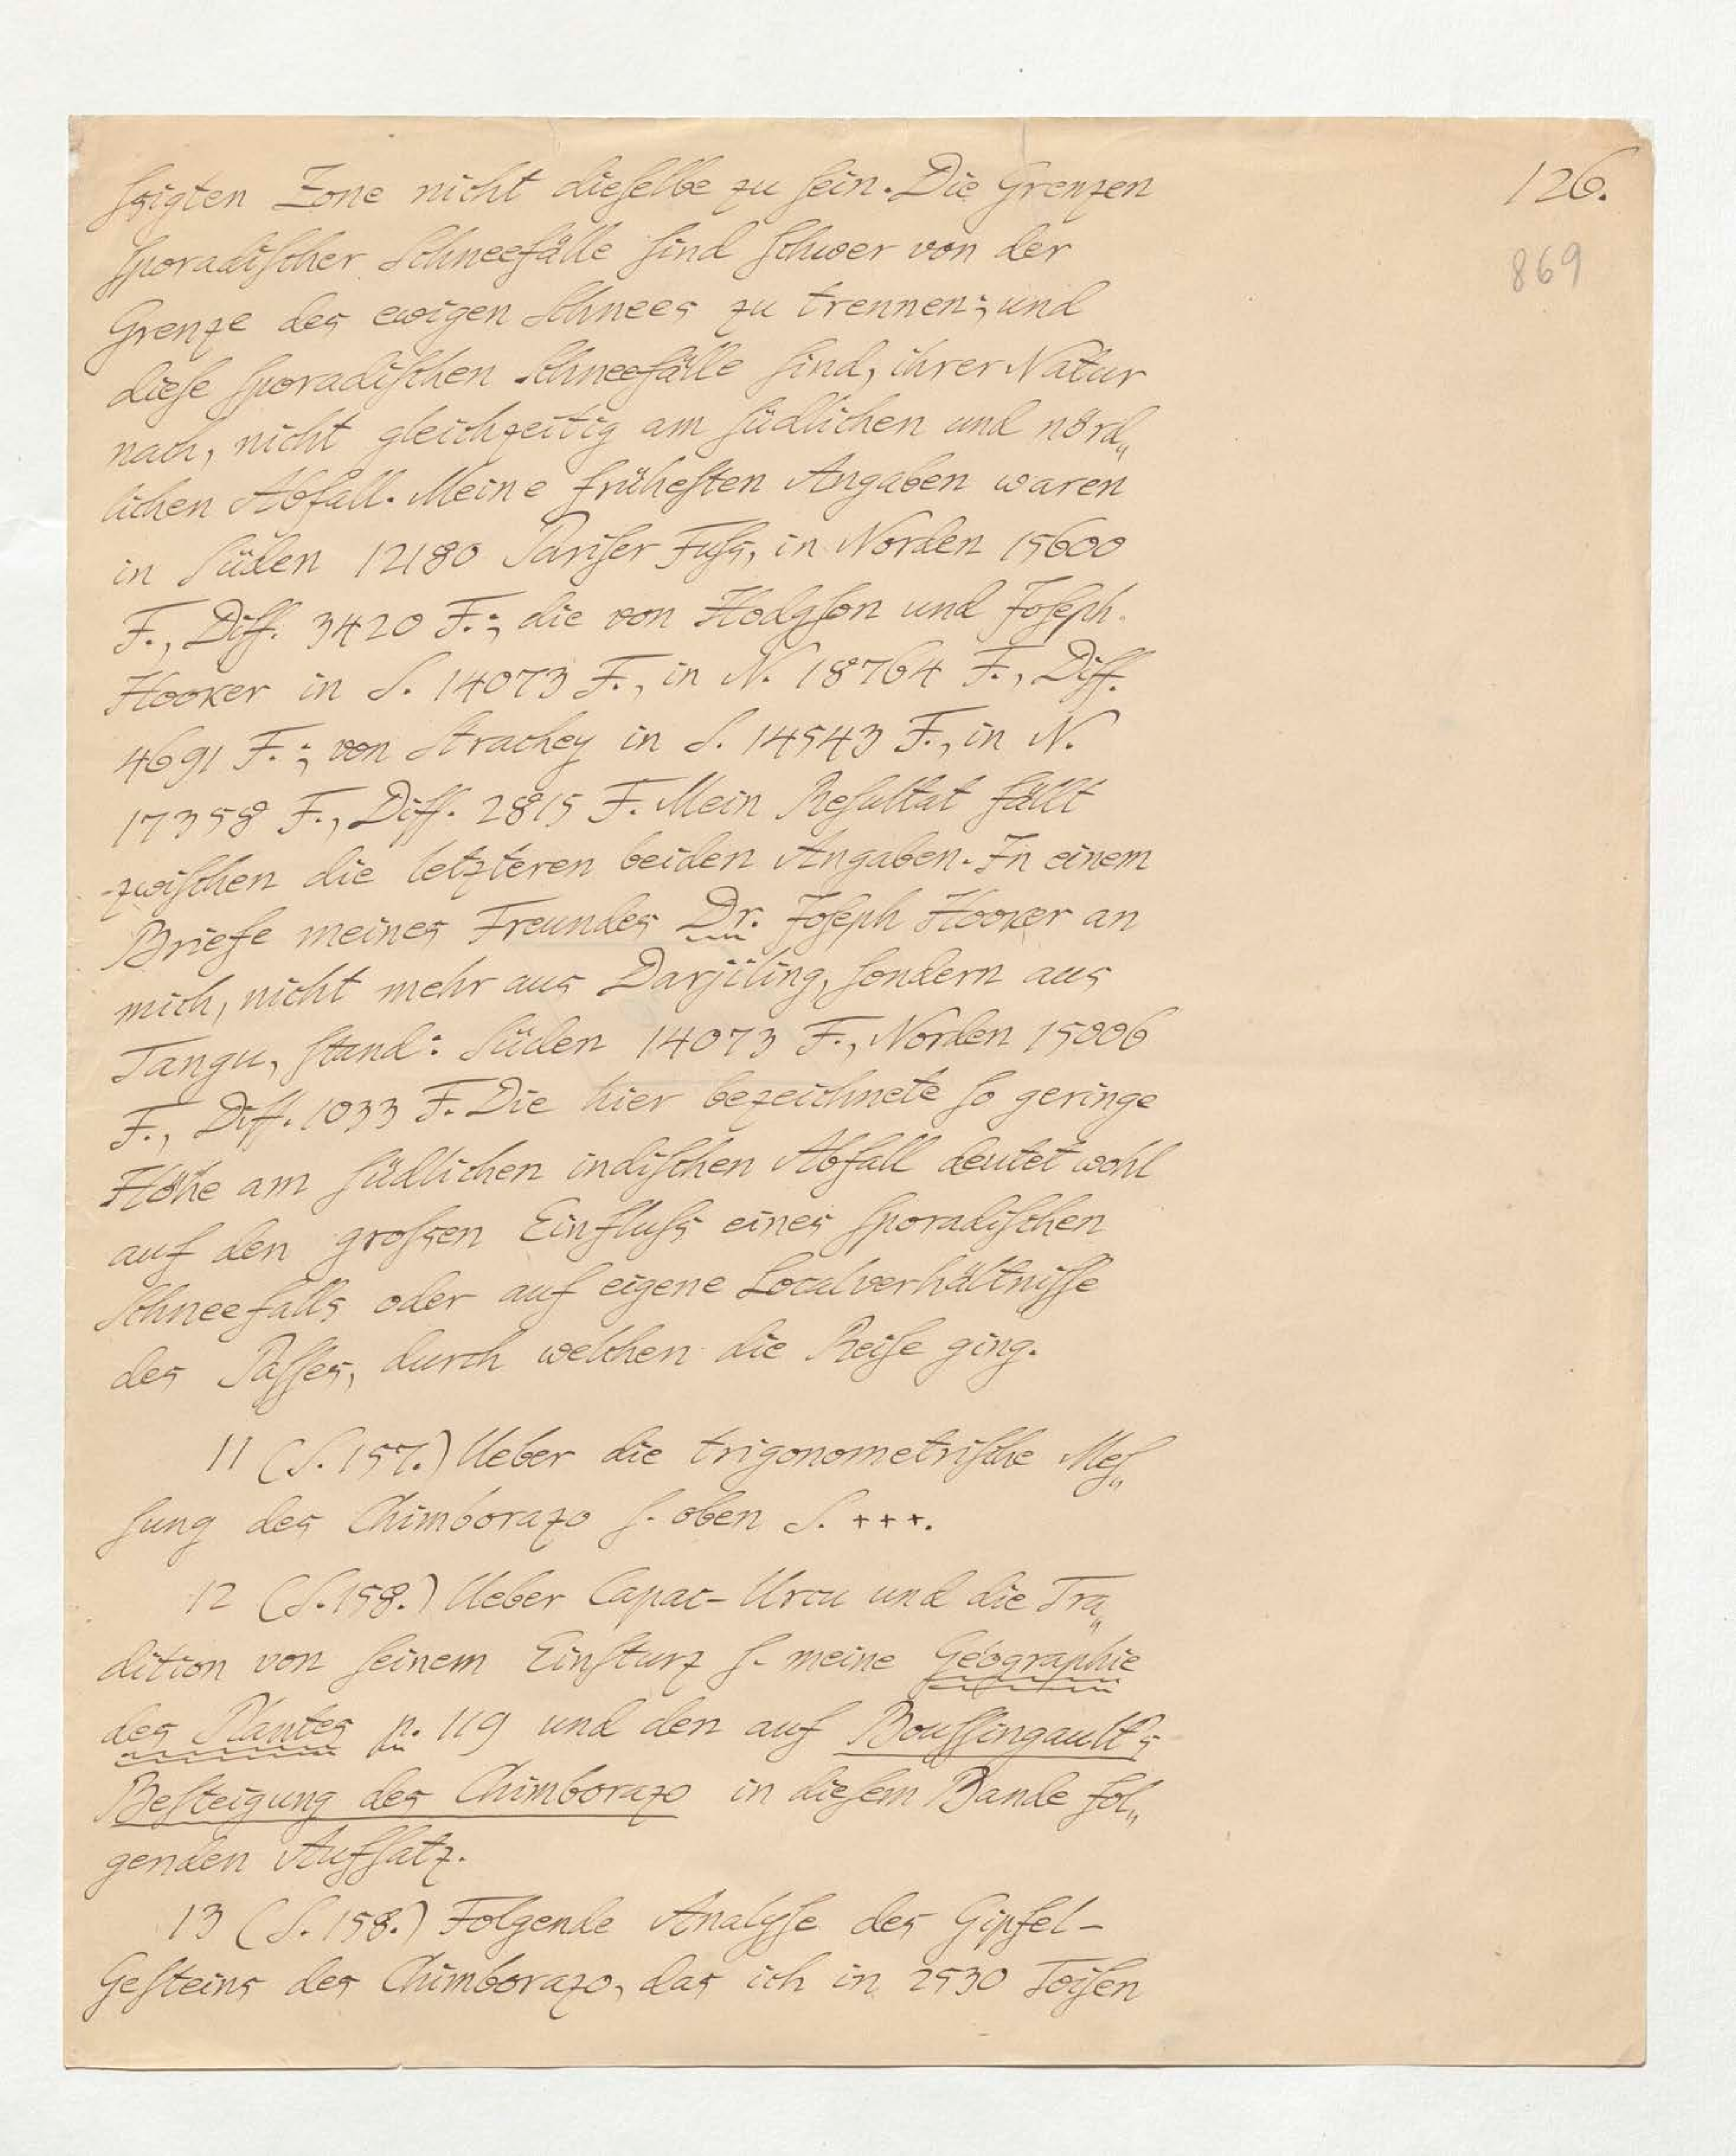 ſsigten Zone nicht dieſelbe zu ſein. Die Grenzen
126.
ſporadiſcher Schneefälle ſind ſchwer von der
869
Grenze des ewigen Schnees zu trennen; und
dieſe ſporadiſchen Schneefälle ſind, ihrer Natur
nach, nicht gleichzeitig am ſüdlichen und nörd„
lichen Abfall. Meine früheſten Angaben waren
in Süden 12180 Pariſer Fuſs, in Norden 15600
F., Diff. 3420 F.; die von Hodgſon und Joſeph
Hooker in S. 14073 F., in N. 18764 F., Diff.
4691 F.; von Strachey in S. 14543 F., in N.
17358 F., Diff. 2815 F. Mein Reſultat fällt
zwiſchen die letzteren beiden Angaben. In einem
Briefe meines Freundes Dr. Joſeph Hooker an
mich, nicht mehr aus Darjiling, ſondern aus
Tangu, ſtand: Süden 14073 F., Norden 15006
F., Diff. 1033 F. Die hier bezeichnete ſo geringe
Höhe am ſüdlichen indiſchen Abfall deutet wohl
auf den groſsen Einfluſs eines ſporadiſchen
Schneefalls oder auf eigene Localverhältniſſe
des Paſſes, durch welchen die Reiſe ging.
11 (S. 157.) Ueber die trigonometriſche Meſ„
ſung des Chimborazo ſ. oben S. +++.
12 (S. 158.) Ueber Capac-Urcu und die Tra„
dition von ſeinem Einſturz ſ. meine Géographie
des Plantes p. 119 und den auf Bouſſingault's
Beſteigung des Chimborazo in dieſem Bande fol„
genden Aufſatz.
13 (S. 158.) Folgende Analyſe des Gipfel-
Geſteins des Chimborazo, das ich in 2530 Toiſen